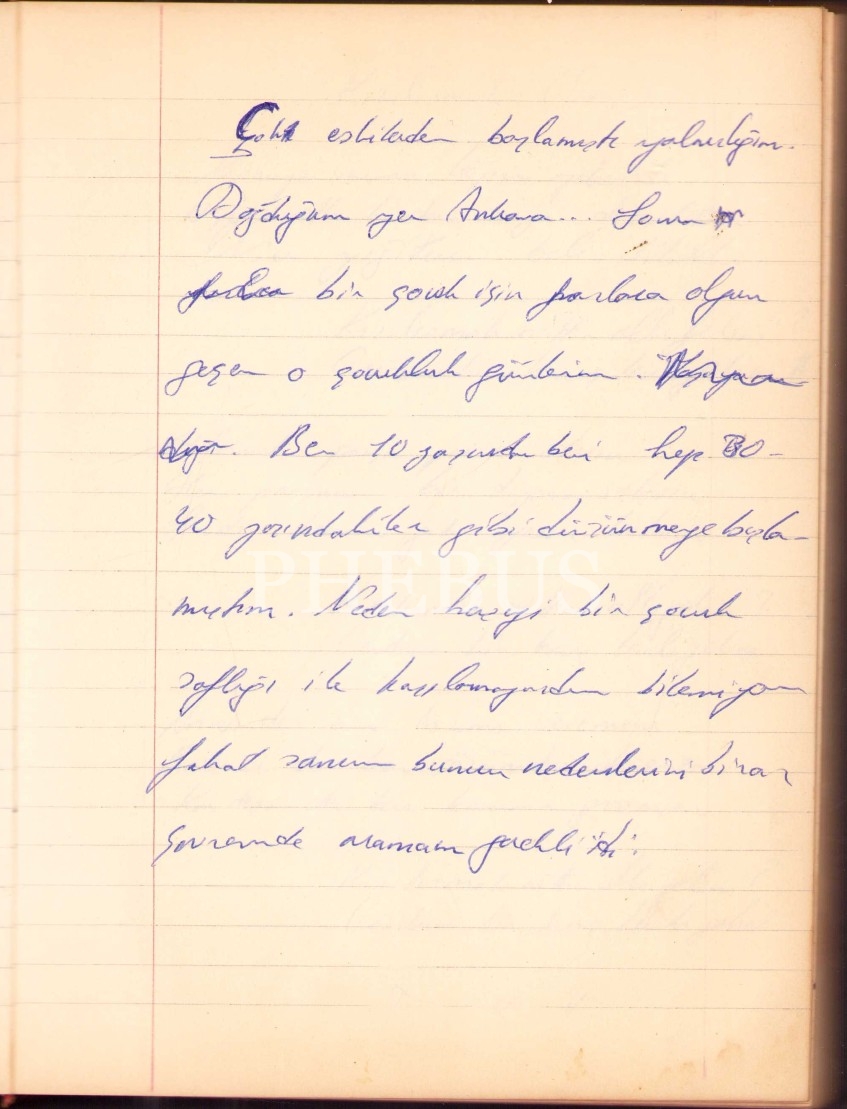 Çok eskilerden başlamıştı yalnızlığım.
Doğduğum yer Ankara... Sonra
bir çocuk için fazlaca olgun
geçen o çocukluk günlerim.
Ben 10 yaşından beri hep 30-
40 yaşındakiler gibi düşünmeye başla-
mıştım. Neden herşeyi bir çocuk
saflığı ile karşılamıyordum bilemiyorum
fakat sanırım bunun nedenlerini biraz
çevremde aramam gerekli idi.
PHEBUS